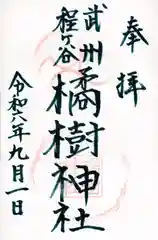 奉拝
武州
程ヶ谷
橘樹神社
令和六年九月一日